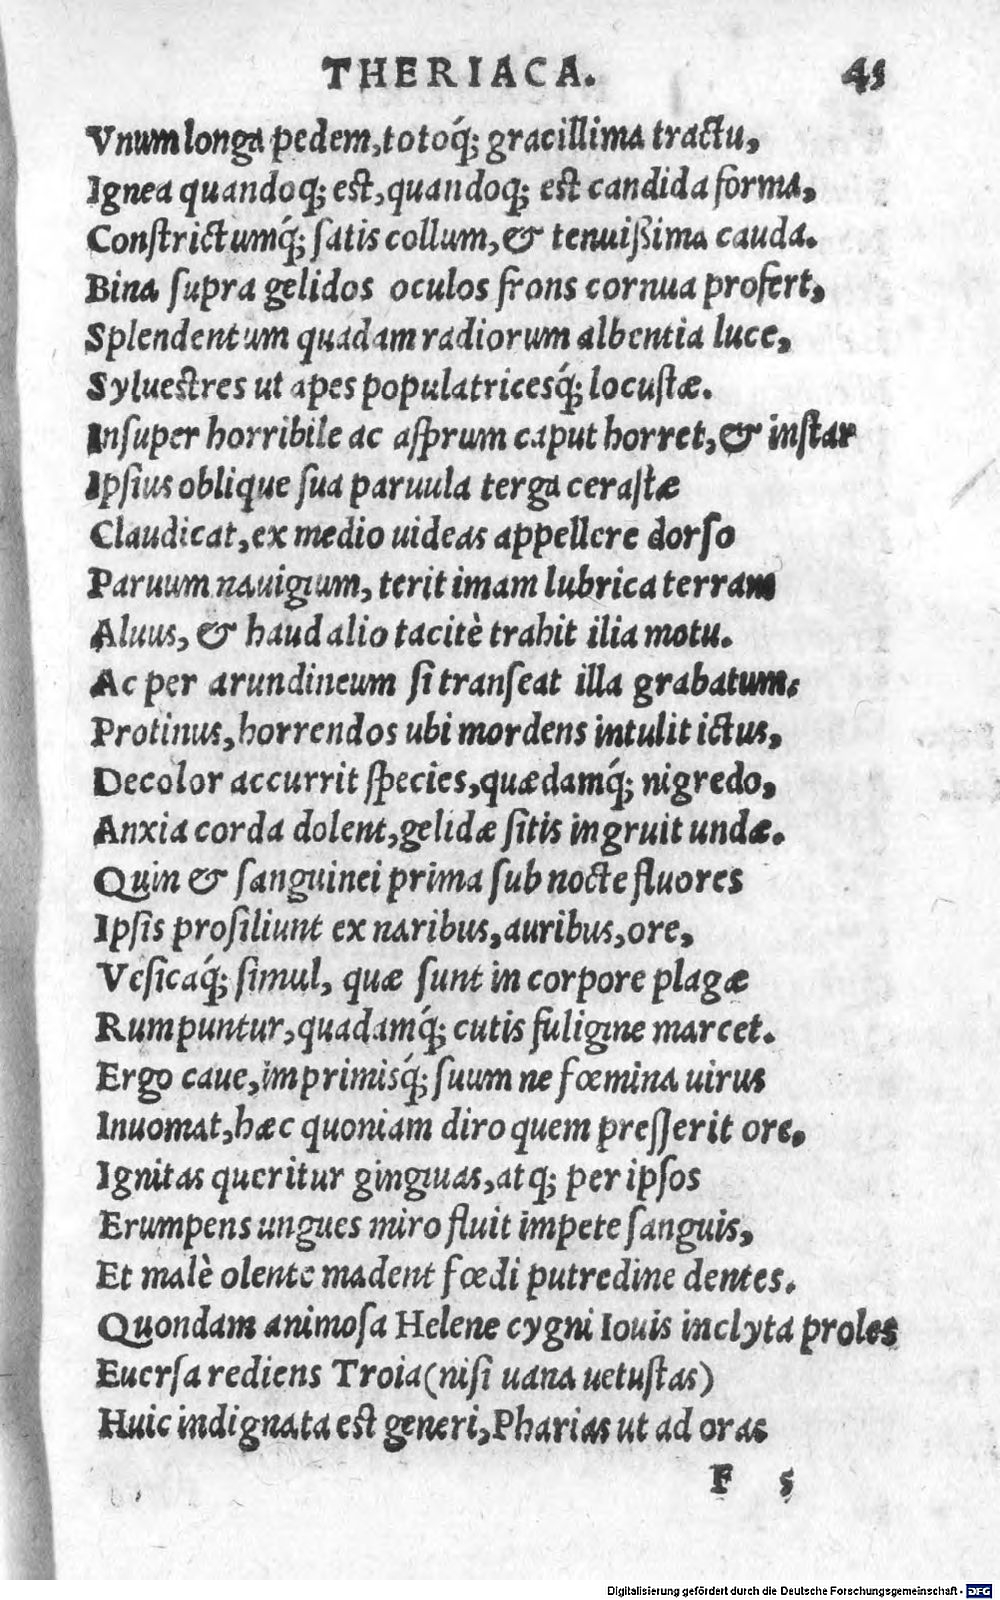 THERIACA. 45
Vnum longa pedem, totoq́; gracillima tractu,
Ignea quandoq; est, quandoq; est candida forma,
Constrictumq́; satis collum, & tenuißima cauda.
Bina supra gelidos oculos frons cornua profert,
Splendentum quadam radiorum albentia luce,
Syluestres ut apes populatricesq́; locustæ.
Insuper horribile ac asprum caput horret, & instar
Ipsius oblique sua paruula terga cerastæ
Claudicat, ex medio uideas appellere dorso
Paruum nauigium, terit imam lubrica terram
Aluus, & haud alio tacitè trahit ilia motu.
Ac per arundineum si transeat illa grabatum.
Protinus, horrendos ubi mordens intulit ictus,
Decolor accurrit species, quædamq́; nigredo,
Anxia corda dolent, gelidæ sitis ingruit undæ.
Quin & sanguinei prima sub nocte fluores
Ipsis prosiliunt ex naribus, auribus, ore,
Vesicaq́; simul, quæ sunt in corpore plagæ
Rumpuntur, quadamq́; cutis fuligine marcet.
Ergo caue, imprimisq́; suum ne fœmina uirus
Inuomat, hæc quoniam diro quem presserit ore,
Ignitas queritur gingiuas, atq; per ipsos
Erumpens ungues miro fluit impete sanguis,
Et malè olente madent fœdi putredine dentes.
Quondam animosa Helene cygni Iouis inclyta proles
Euersa rediens Troia (nisi uana uetustas)
Huic indignata est generi, Pharias ut ad oras
F 5
Digitalisierung gefördert durch die Deutsche Forschungsgemeinschaft - DFG